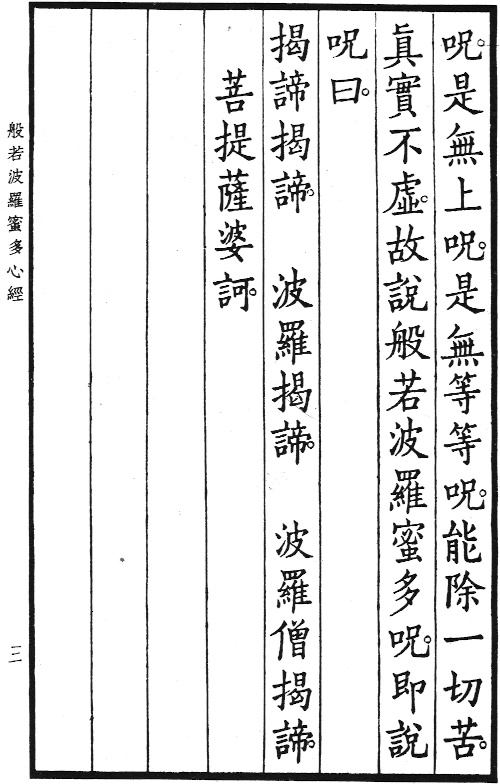 呪。是無上呪。是無等等呪。能除一切苦。
眞實不虛。故說般若波羅蜜多呪。即說
呪曰。
揭諦揭諦。　波羅揭諦。　波羅僧揭諦。
菩提薩婆訶。
般若波羅蜜多心經　三